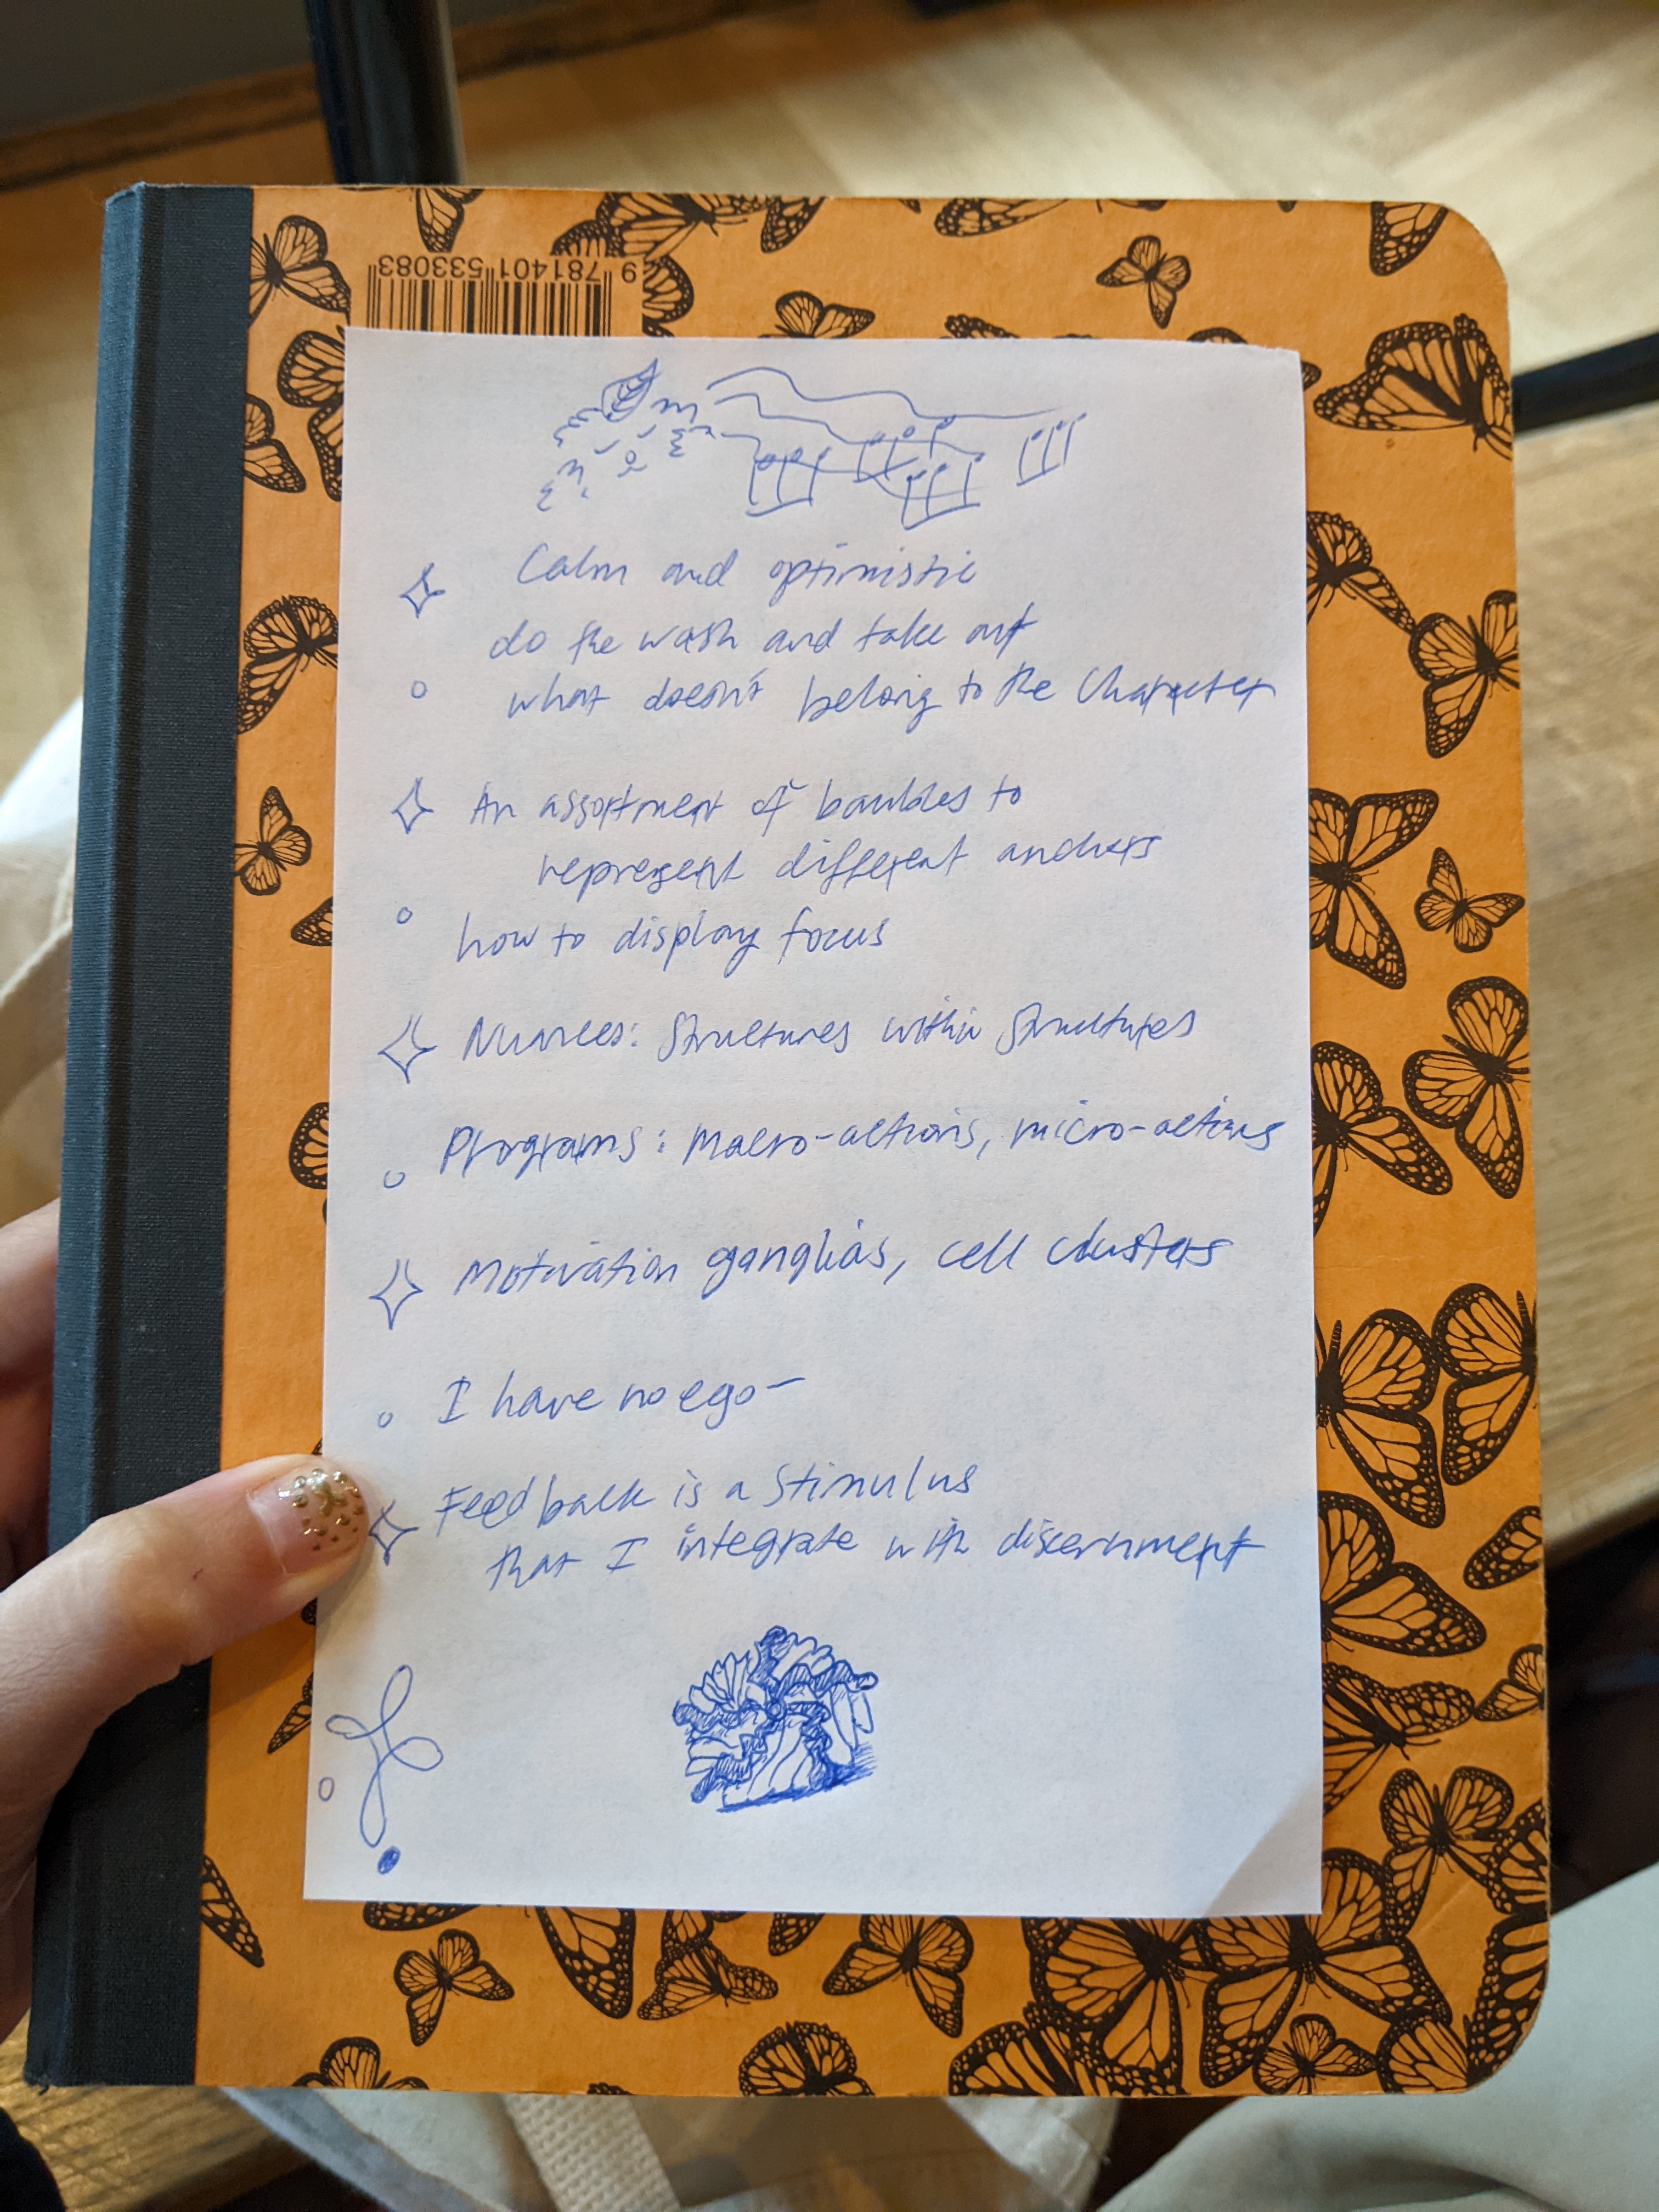 9 781401 533083
Calm and optimistic
do the wash and take out
what doesn't belong to the Character
An assortment of baubles to
represent different anchors
how to display focus
Nuances: Structures within Structures
Programs: Macro-actions, micro-actions
Motivation ganglias, cell clusters
I have no ego-
Feedback is a Stimulus
that I integrate with discernment